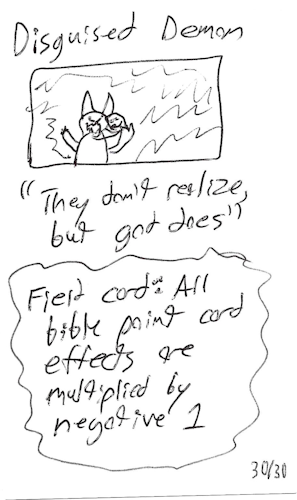 Disguised Demon
"They don't realize,
but god does"
Field card: All
bible point card
effects are
multiplied by
negative 1
30/30